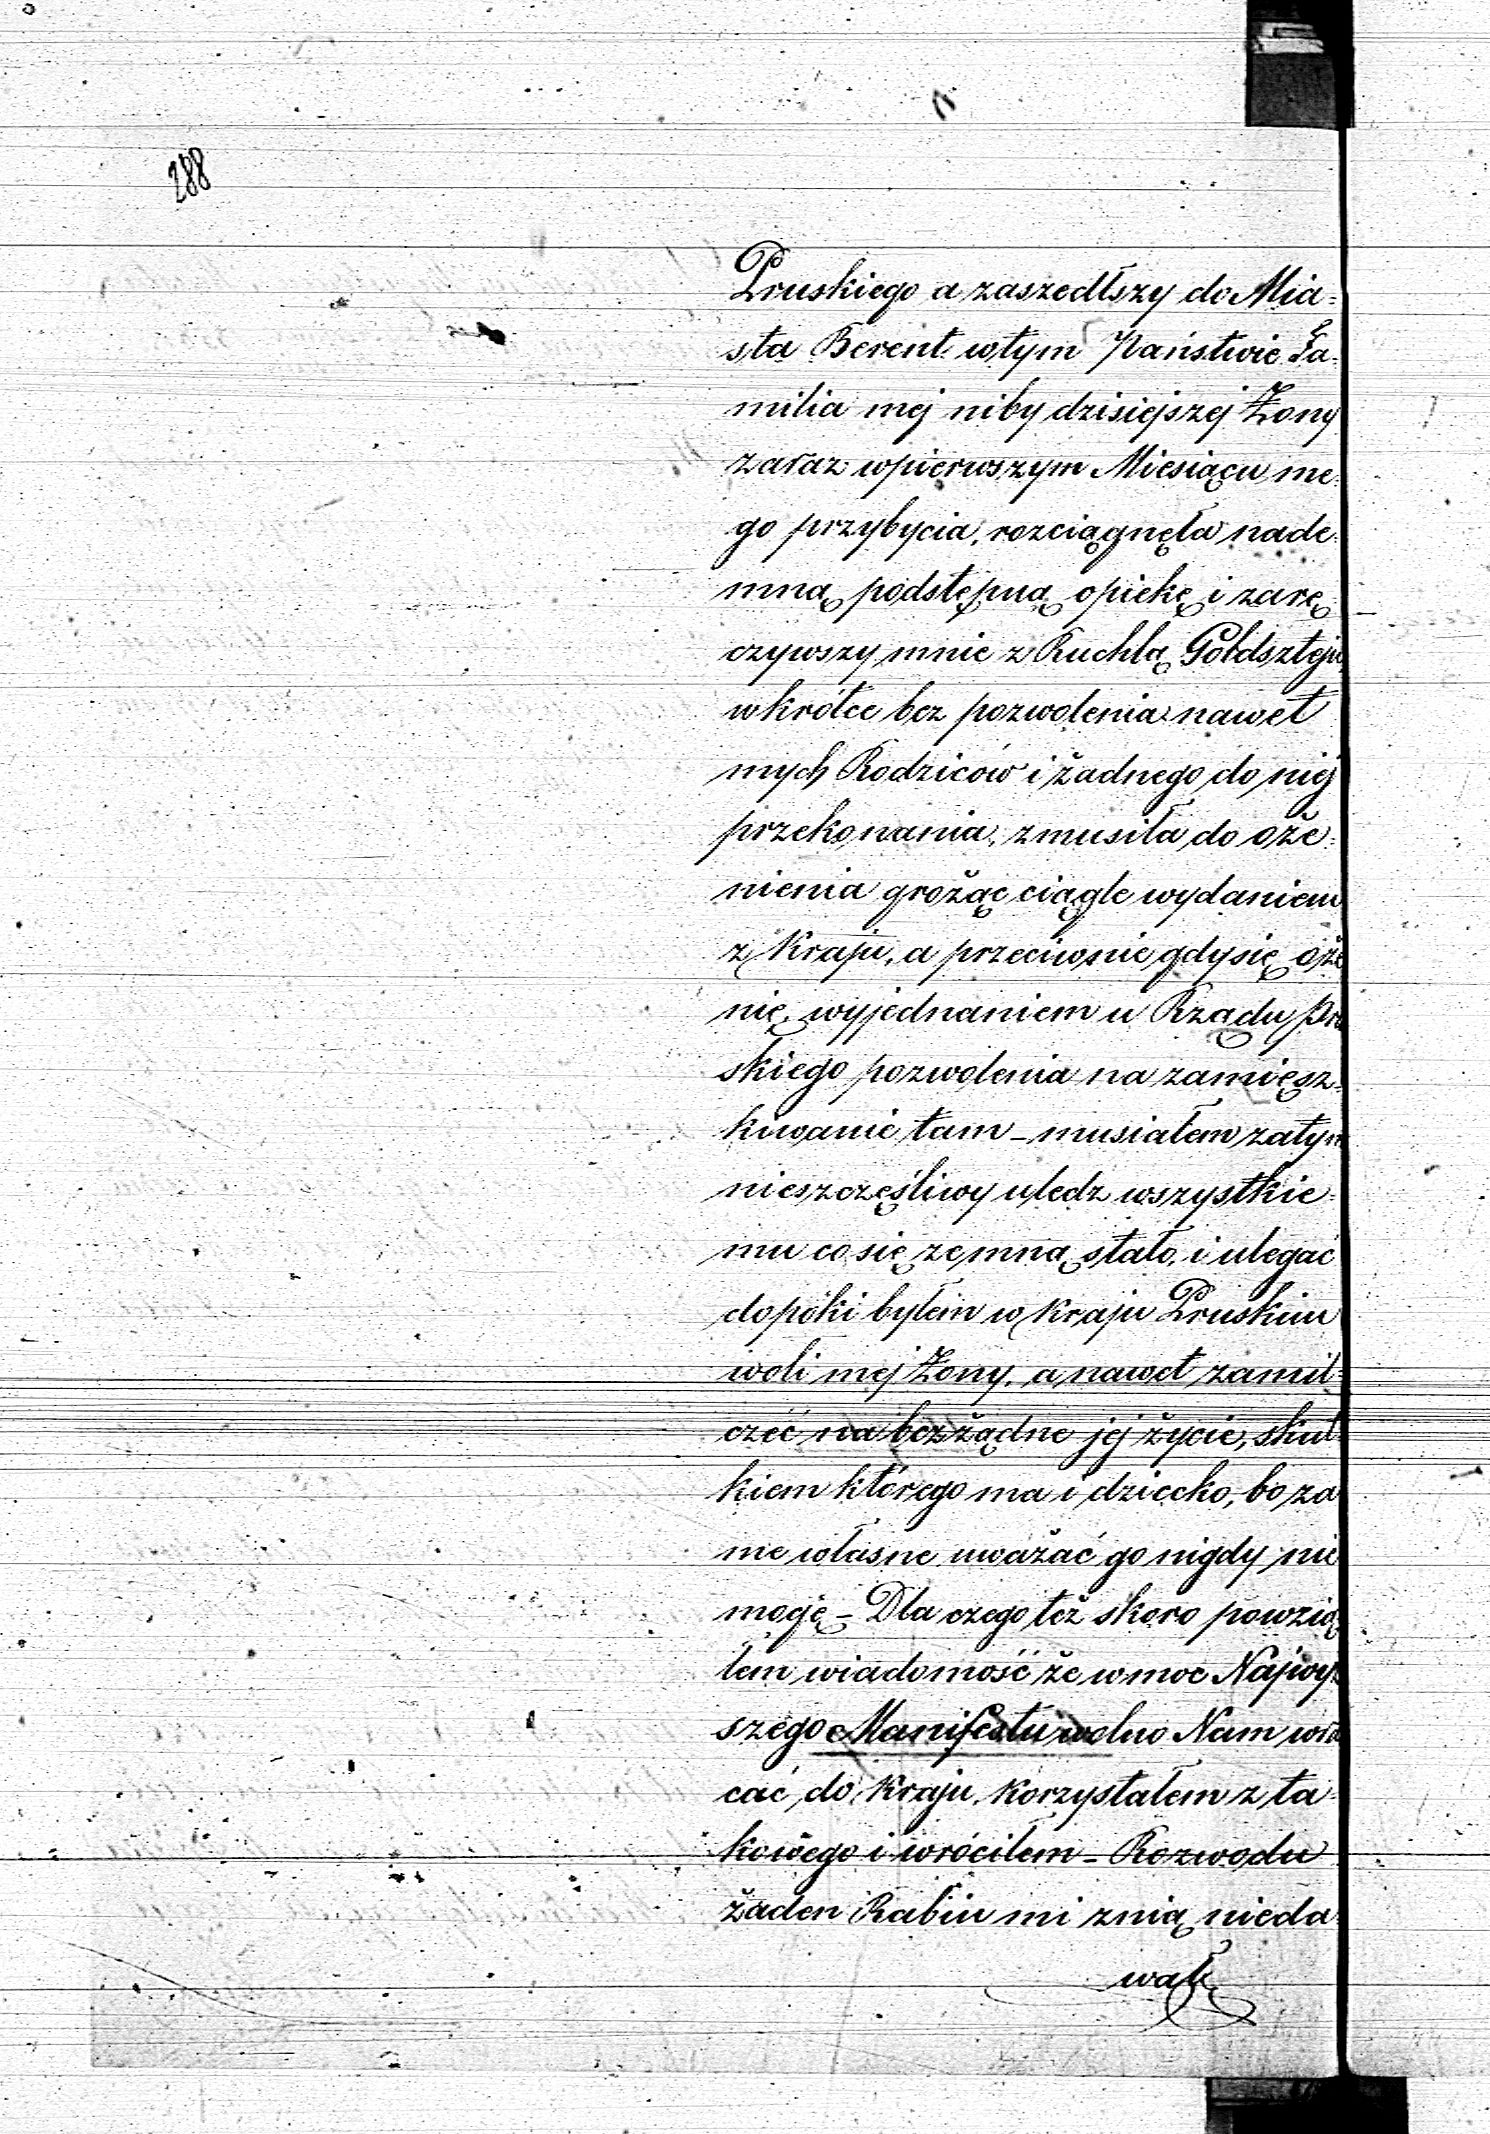 288
Pruskiego a zaszedłszy do Mia=
sta Berent w tym Państwie Fa=
milia mej niby dzisiejszej Żony
zaraz w pierwszym Miesiącu me=
go przybycia, rozciągnęła nade=
mną podstępną opiekę i zarę=
czywszy mnie z Ruchlą Goldsztejn
wkrótce bez pozwolenia nawet
mych Rodziców i żadnego do niej
przekonania, zmusiła do oże=
nienia grożąc ciągle wydaniem
z Kraju, a przeciwnie gdy się oże
nię, wyjednaniem u Rządu Pru
skiego pozwolenia na zamiesz=
kiwanie tam – musiałem zatym
nieszczęśliwy uledz wszystkie=
mu co się ze mną stało, i ulegać
dopóki byłem w Kraju Pruskim
woli mej Żony, a nawet zamil=
czeć na bezżądne jej życie, skut
kiem którego ma i dziecko, bo za
me własne uważać go nigdy nie
mogę – Dla czego też skoro powzią
łem wiadomość że w moc Najwyż
szego Manifestu wolno Nam wra
cać do Kraju, korzystałem z ta=
kowego i wróciłem – Rozwodu
żaden Rabin mi z nią nieda=
wał